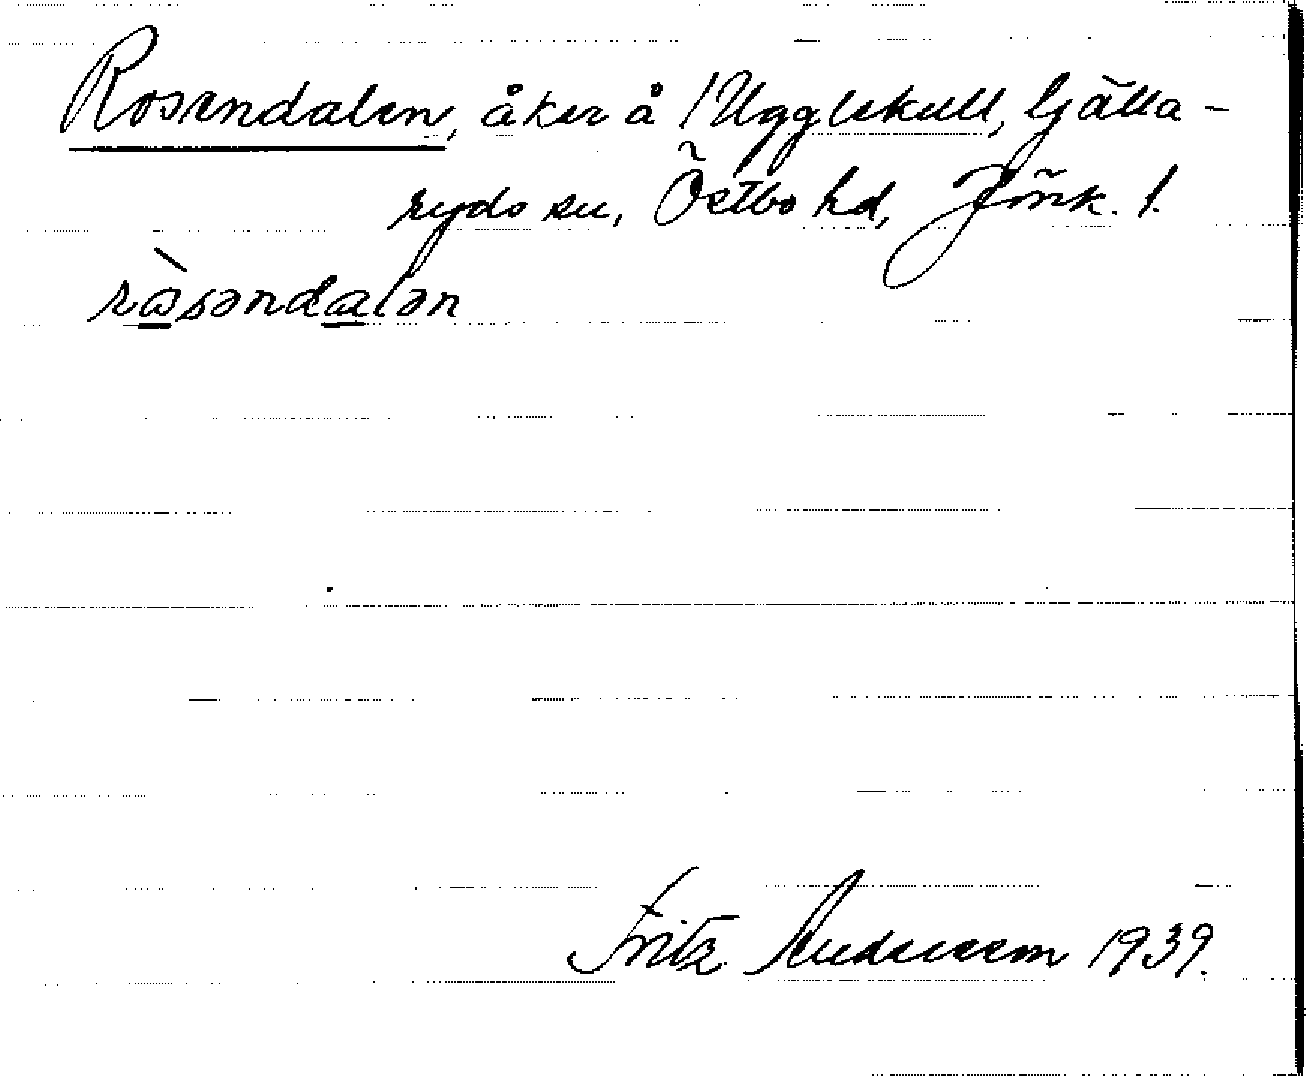 Rosendalen, åker å /Ugglekull, Gjälla-
ryds sn, Östbo hd, Jönk. l.
ràsəndalən
Fritz Andersson 1939.